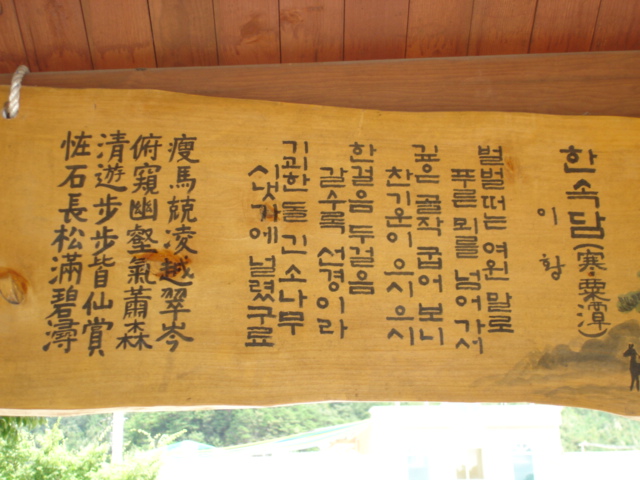 한속담(寒粟潭)
이황
벌벌떠는 여윈 말로
푸른 뫼를 넘어가서
깊은 골작 굽어보니
찬기운이 으시으시
한걸음 두걸음
갈수록 선경이라
기괴한 돌 긴 소나무
시냇가에 널렸구료
瘦馬兢凌越翠岑
俯窺幽壑氣蕭森
清遊步步皆仙賞
恠石長松滿碧潯